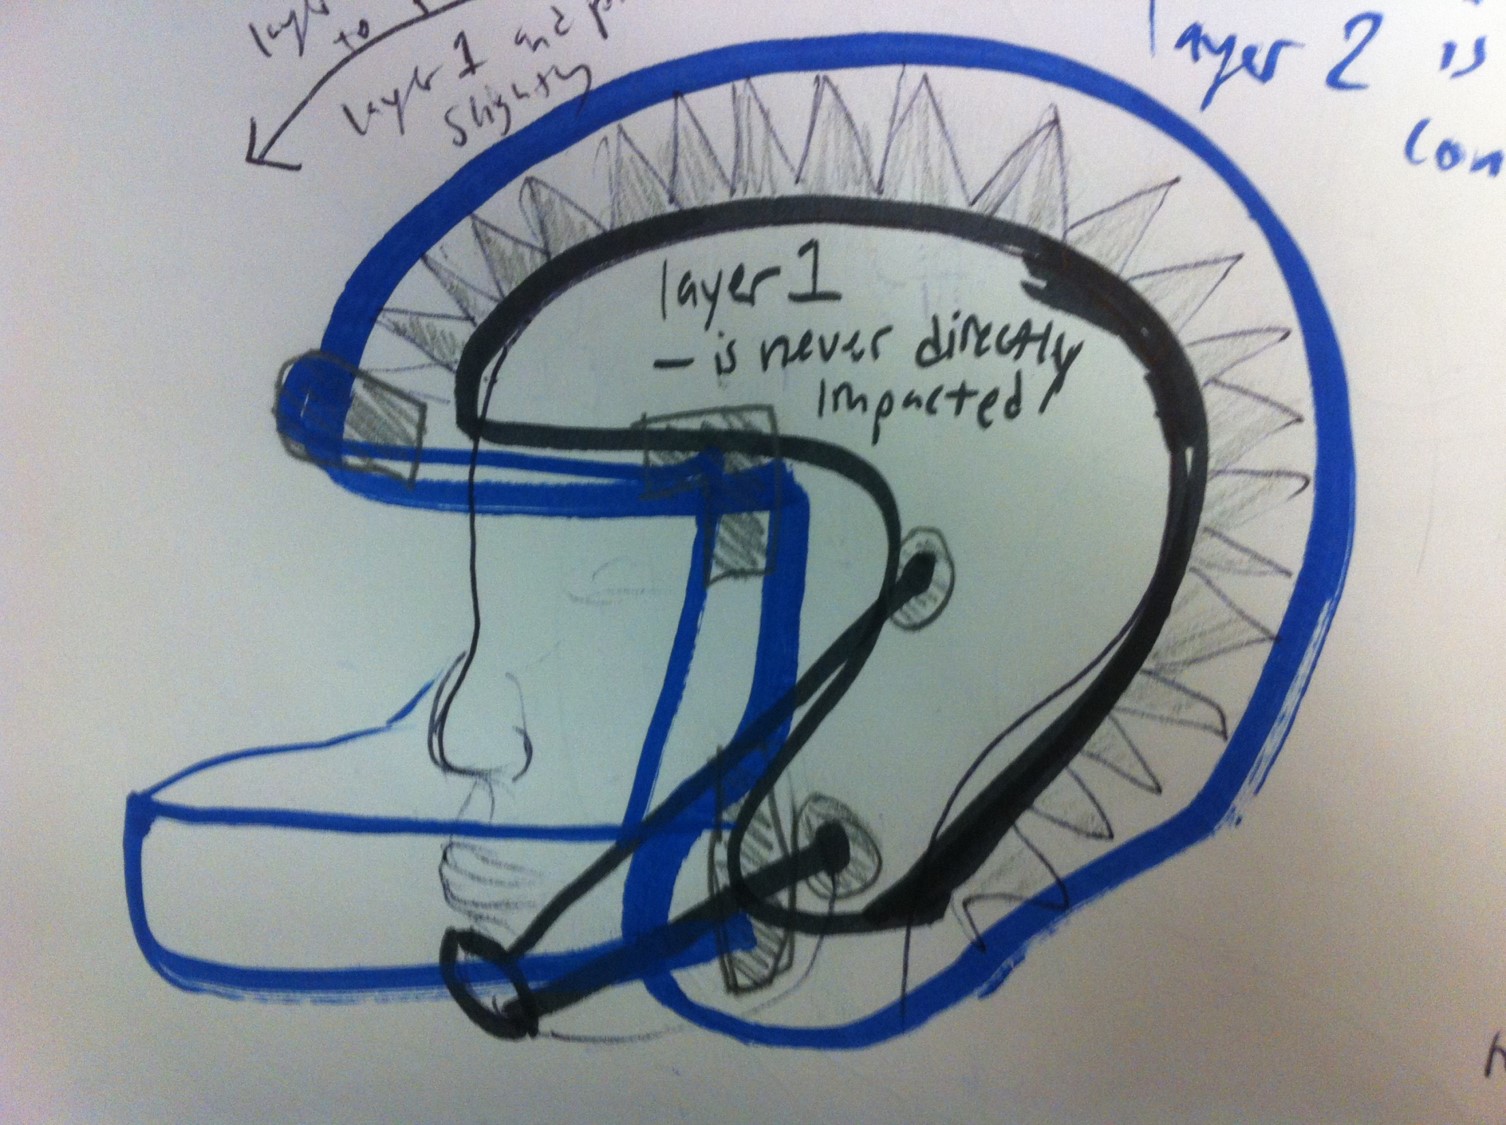 layer
to
layer 1 and p
slightly
layer 2 is
con
layer 1
– is never directly
impacted!